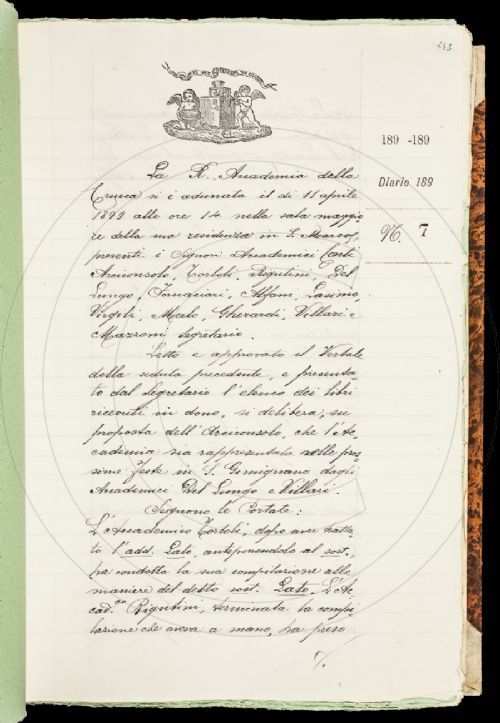 253
189 -189
Diario 189
N. 7
La R. Accademia della
Crusca si è adunata il dì 11 aprile
1899 alle ore 14 nella sala maggio-
re della sua residenza in S. Marco,
presenti i Signori Accademici Conti
Arciconsolo, Tortoli, Rigutini, Del
Lungo, Tornaciari, Alfani, Lasinio,
Virgili, Merlo, Gherardi, Villari e
Mazzoni Segretario.
Letto e approvato il Verbale
della seduta precedente, e presenta-
to dal Segretario l'elenco dei libri
ricevuti in dono, si delibera, su
proposta dell'Arciconsolo, che l'Ac-
cademia sia rappresentata nelle pros-
sime feste in S. Gemignano dagli
Accademici Del Lungo e Villari.
Seguono le Portate:
L'Accademico Tortoli, dopo aver tratta-
to l'add. Lato, anteponendolo al sost.,
ha condotta la sua compilazione alle
maniere del detto sost. Lato. L'Ac-
cad.co Rigutini, terminata la compi-
lazione che aveva a mano, ha preso